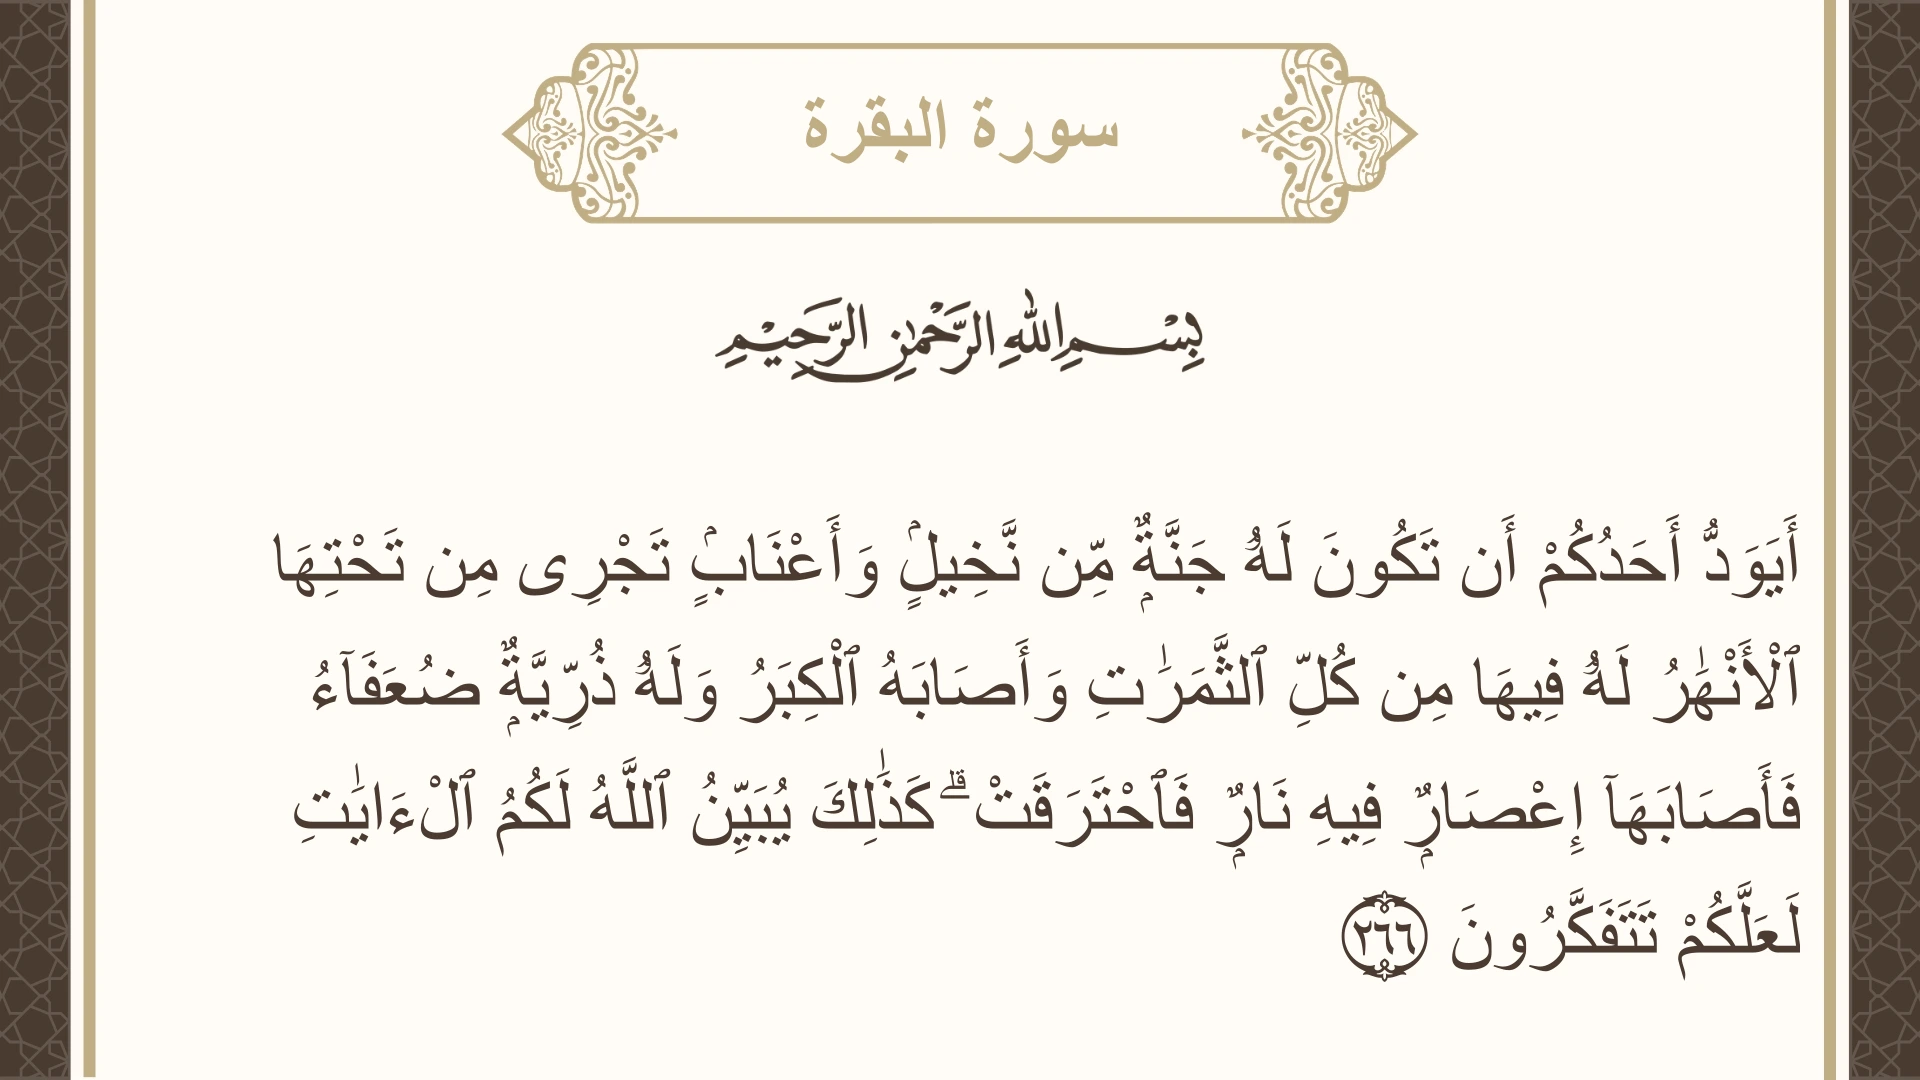 سورة البقرة
بِسْمِ اللهِ الرَّحْمٰنِ الرَّحِيْمِ
أَيَوَدُّ أَحَدُكُمْ أَن تَكُونَ لَهُۥ جَنَّةٌۭ مِّن نَّخِيلٍۢ وَأَعْنَابٍۢ تَجْرِى مِن تَحْتِهَا
ٱلْأَنْهَـٰرُ لَهُۥ فِيهَا مِن كُلِّ ٱلثَّمَرَٰتِ وَأَصَابَهُ ٱلْكِبَرُ وَلَهُۥ ذُرِّيَّةٌۭ ضُعَفَآءُ
فَأَصَابَهَآ إِعْصَارٌۭ فِيهِ نَارٌۭ فَٱحْتَرَقَتْ ۗ كَذَٰلِكَ يُبَيِّنُ ٱللَّهُ لَكُمُ ٱلْـَٔايَـٰتِ
لَعَلَّكُمْ تَتَفَكَّرُونَ ٢٦٦